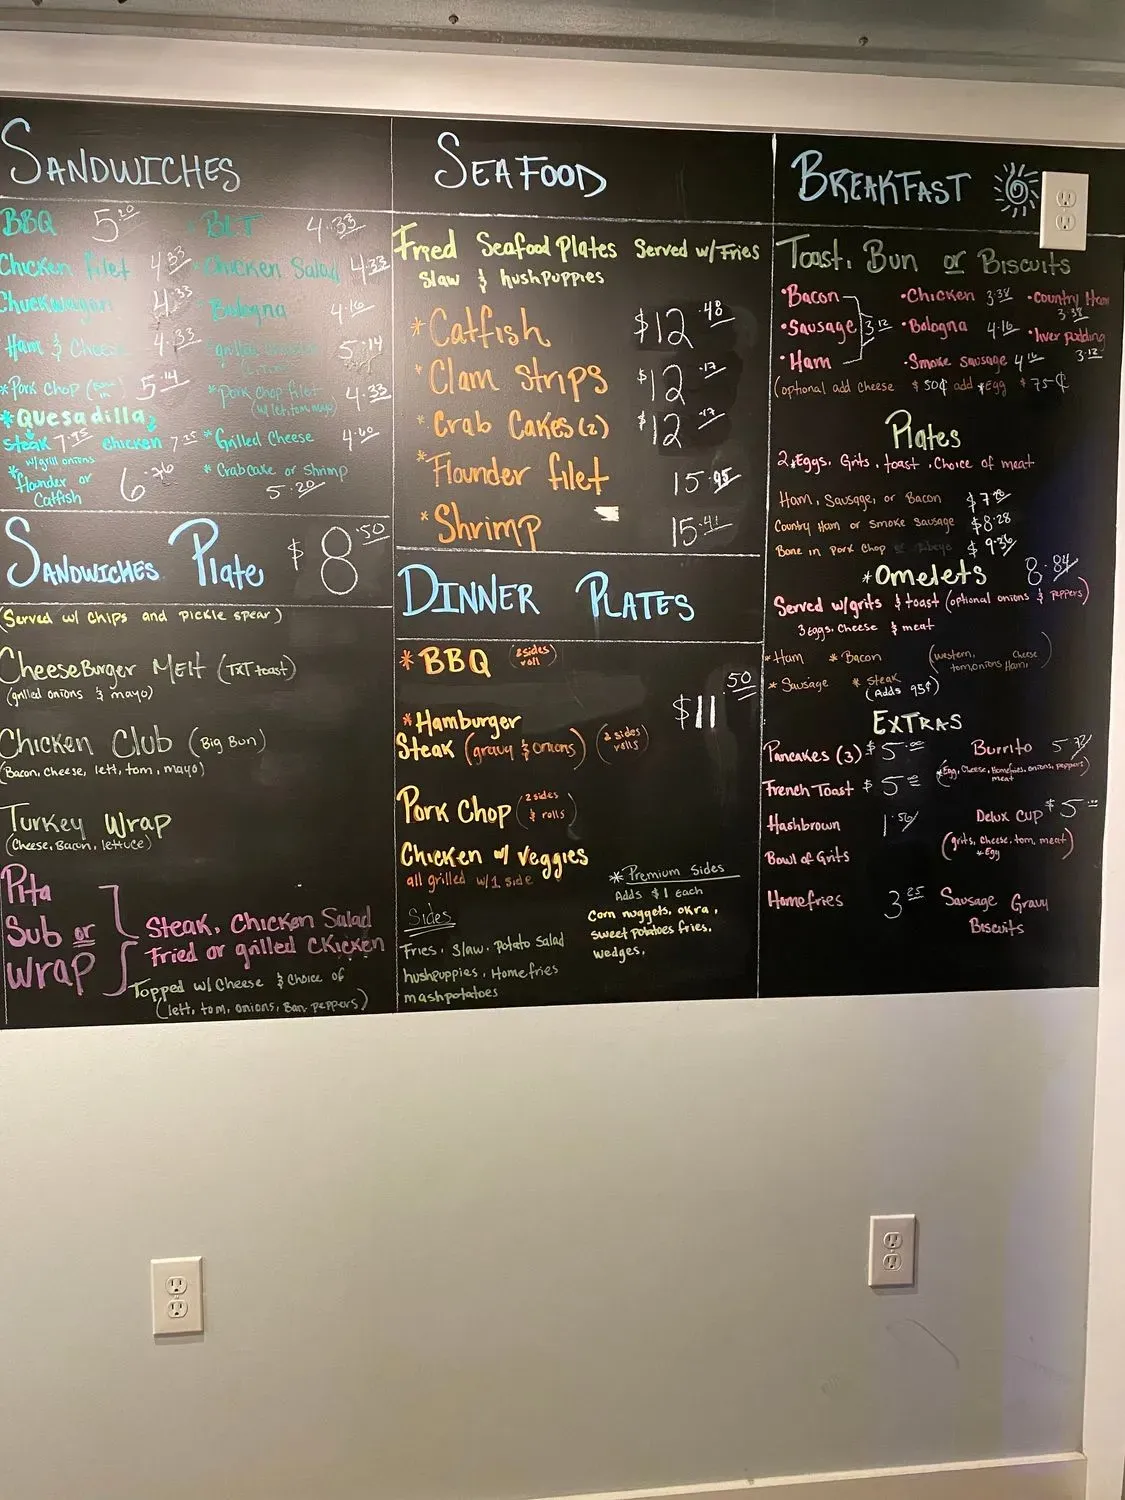 SANDWICHES
BBQ 5.20
BLT 4.33
Chicken filet 4.33
Chicken Salad 4.33
Chuckwagon 4.33
Bologna 4.16
Ham & Cheese 4.33
grilled 5.14
*Pork Chop 5.14
*Pork Chop filet 4.33
(w/ let, tom, mayo)
*Quesadilla
Steak 7.75 chicken 7.25
w/grill onions
*Grilled Cheese 4.60
*flounder or
Catfish 6.76
*Crabcake or Shrimp
5.20
SANDWICHES Plate $8.50
(Served w/ chips and pickle spear)
CheeseBurger Melt (TXT toast)
(grilled onions & mayo)
Chicken Club (Big Bun)
(Bacon, cheese, lett, tom, mayo)
Turkey Wrap
(Cheese, Bacon, lettuce)
Pita
Sub or
Wrap
Steak, Chicken Salad
Fried or grilled Chicken
Topped w/ Cheese & Choice of
(lett, tom, onions, Ban. peppers)
SEAFOOD
Fried Seafood Plates Served w/ Fries
Slaw & hushpuppies
*Catfish $12.48
*Clam Strips $12
*Crab Cakes (2) $12
*Flounder filet 15.95
*Shrimp 15.41
DINNER PLATES
*BBQ (2 sides
roll)
$11.50
*Hamburger
Steak (gravy & onions) (2 sides
rolls)
Pork Chop (2 sides
& rolls)
Chicken w/ Veggies
all grilled w/ 1 side
Sides
Fries, Slaw, Potato Salad
hushpuppies, Homefries
mashpotatoes
*Premium Sides
Adds $1 each
Corn nuggets, okra,
sweet potatoes fries,
wedges,
BREAKFAST
Toast, Bun or Biscuits
•Bacon
•Sausage 3.12
•Ham
•Chicken 3.38
•Bologna 4.16
•Smoke Sausage 4.16
•Country Ham
3.38
•liver pudding
3.12
(optional add cheese $50¢ add *Egg $75¢)
Plates
2 Eggs, Grits, toast, Choice of meat
Ham, Sausage, or Bacon $7
Country Ham or Smoke Sausage $8.28
Bone in Pork Chop $9.36
*Omelets 8.84
Served w/grits & toast (optional onions & peppers)
3 eggs, cheese & meat
*Ham *Bacon
*Sausage *Steak
(Adds 95¢)
(western, Cheese
tom, onions Ham)
EXTRAS
Pancakes (3) $5.00
French Toast $5.00
Hashbrown 1.56
Bowl of Grits
Homefries 3.25
Burrito 5.72
*Egg, Cheese, Homefries, onions, peppers
meat
Delux Cup $5.00
(grits, cheese, tom, meat)
*Egg
Sausage Gravy
Biscuits